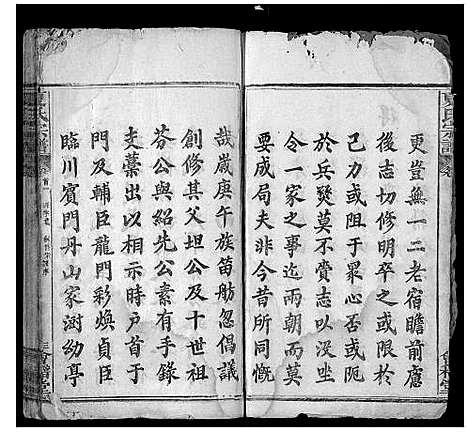 更豈無一二老宿瞻前慮
後志切修明卒之或阻於
己力或阻于眾心甚且阻
於兵燹莫不賫志以沒坐
令一家之事迄兩朝而莫
要成局夫非今昔所同慨
哉歲庚午族笛舫忽倡議
創修其父坦公及十世祖
芬公與紹先公素有手錄
支藁出以相示時戶首于
門及輔臣龍門彩煥貞臣
臨川賓門丹山家澍幼亭
夏氏宗譜